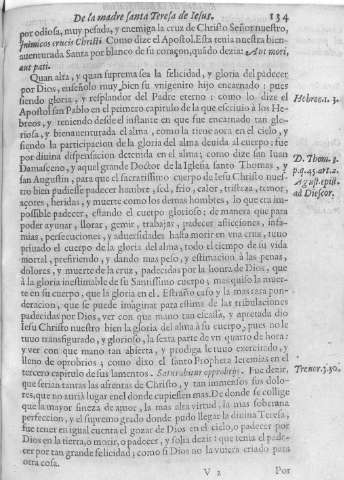 De la madre santa Teresa de Iesus. 134
por odiosa, muy pesada, y enemiga la cruz de Christo Señor nuestro,
inimicos crucis Christi. Como dize el Apostol. Esta tenia nuestra bien-
auenturada Santa por blanco de su coraçon, quãdo dezia: Aut mori,
aut pati.
Quan alta, y quan suprema sea la felicidad, y gloria del padecer
por Dios, enseñolo muy bien su vnigenito hijo encarnado : pues
siendo gloria, y resplandor del Padre eterno : como lo dize el
Apostol san Pablo en el primero capitulo de la que escriuio à los He- Hebreor. 1. 3.
breos, y teniendo desde el instante en que fue encarnado tan glo-
riosa, y bienauenturada el alma, como la tiene aora en el cielo, y
siendo la participacion de la gloria del alma deuida al cuerpo: fue
por diuina dispensacion detenida en el alma; como dize san Iuan
Damasceno, y aquel grande Doctor de la Iglesia santo Thomas, y D. Thom. 3.
san Augustin, para que el sacratissimo cuerpo de Iesu Christo nues- p.q.45.art.2.
tro bien pudiesse padecer hambre, sed, frio, calor, tristeza, temor, August. epist.
açotes, heridas, y muerte como los demas hombres, lo que era im- ad Dioscor.
possible padecer, estando el cuerpo glorioso; de manera que para
poder ayunar, llorar, gemir, trabajar, padecer aflicciones, infa-
mias, persecuciones, y aduersidades hasta morir en vna cruz, tuuo
priuado el cuerpo de la gloria del alma, todo el tiempo de su vida
mortal, prefiriendo, y dando mas peso, y estimacion à las penas,
dolores, y muerte de la cruz, padecidas por la honra de Dios, que
à la gloria inestimable de su Santissimo cuerpo; mas quiso la muer-
te en su cuerpo, que la gloria en el. Estraño caso y la mas rara pon-
deracion, que se puede imaginar para estima de las tribulaciones
padecidas por Dios, ver con que mano tan escassa, y apretada dio
Iesu Christo nuestro bien la gloria del alma à su cuerpo, pues no le
tuuo transfigurado, y glorioso, la sexta parte de vn quarto de hora:
y ver con que mano tan abierta, y prodiga le tuuo exercitado, y
lleno de oprobrios ; como dixo el santo Propheta Jeremias en el
tercero capitulo de sus lamentos. Saturabitur opprobrijs. Fue dezir, Trenor. 3. 30.
que serian tantas las afrentas de Christo, y tan inmensos sus dolo-
res, que no auria lugar en el donde cupiessen mas. De donde se collige
que la mayor fineza de amor, la mas alta virtud, la mas soberana
perfeccion, y el supremo grado donde pudo llegar la diuina Teresa,
fue tener en igual cuenta el gozar de Dios en el cielo, o padecer por
Dios en la tierra, o morir, o padecer, y solia dezir : que tenia el pade-
cer por tan grande felicidad; como si Dios no la vuiera criado para
otra cosa.
V 2 Por